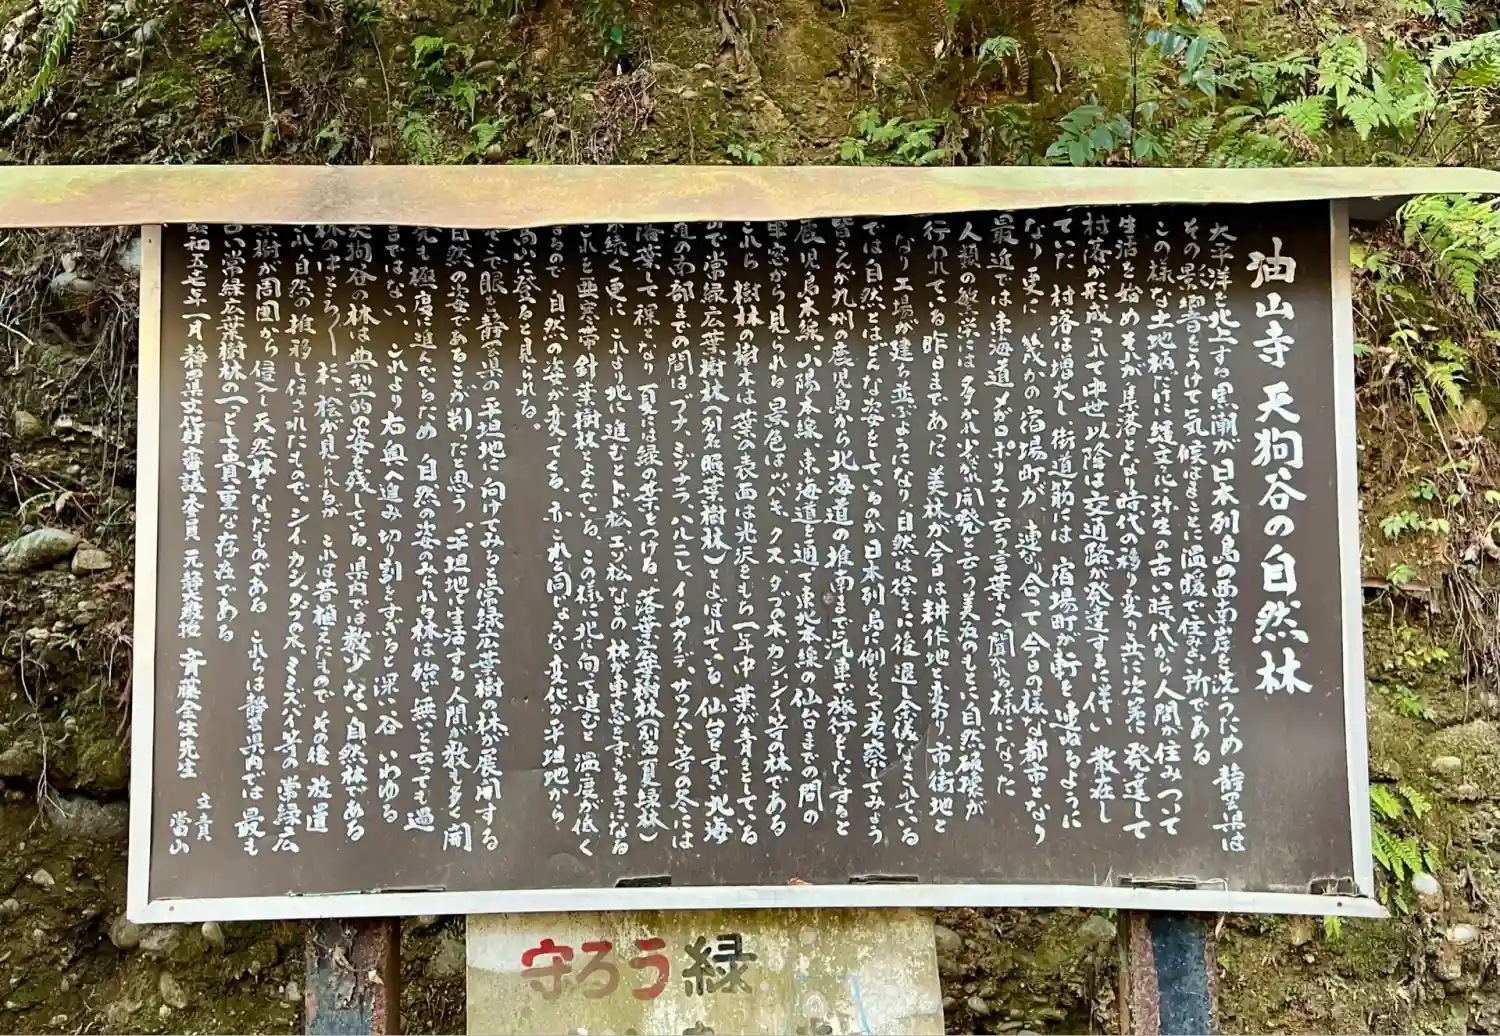 油山寺 天狗谷の自然林
太平洋を北上する黒潮が日本列島の西南岸を洗うため 静岡県は
その影響をうけて気候はまことに温暖で住よい所である
この様な土地柄だけに縄文 弥生の古い時代から人間が住みついて
生活を始め それが集落となり時代の移り変りと共に次第に発達して
村落が形成されて中世以降は交通路が発達するに伴い 散在し
ていた 村落は増大し、街道筋には 宿場町が軒を連ねるように
なり 更に、幾かの宿場町が、連なり合って今日の様な都市となり
最近では東海道メガロポリスと云う言葉さへ聞かれる様になった
人類の繁栄には多かれ少なかれ開発と云う美名のもとに自然破壊が
行われている 昨日まであった 美林が今日は 耕作地と変り 市街地と
なり 工場が建ち並ぶようになり 自然は徐々に後退し余儀なくされている
では 自然とはどんな姿をしているのか 日本列島に例をとって考察してみよう
皆さんが九州の鹿児島から北海道の推南まで汽車で旅行をしたとすると
鹿児島本線、山陽本線、東海道を通って東北本線の仙台までの間の
車窓から見られる景色はツバキ、クス、タブの木 カシ シイ等の林である
これら 樹林の樹木は葉の表面は光沢をもち 一年中 葉が青々としている
ので常緑広葉樹林(別名 照葉樹林)とよばれている、仙台をすぎ北海
道の南部までの間はブナ、ミヅナラ、ハルニレ、イタヤカイデ、サワグミ等の冬には
落葉して 裸となり 夏には緑の葉をつける、落葉広葉樹林(別名 夏緑林)
が続く更に これより北に進むとトド松、エゾ松などの 林が車窓をすぎるようになる
これを亜寒帯 針葉樹林とよんでいる、この様に北に向って進むと 温度が低く
なるので、自然の姿が変ってくる、亦、これと同じような変化が平坦地から
高山に登ると見られる。
そこで眼を静岡県の平坦地に向けてみると常緑広葉樹の林が展開する
自然の姿であることが判ったと思う、平坦地は生活する人間が数も多く開
発も極度に進んでいるため 自然の姿のみられる林は殆ど無いと云っても過
言ではない、これより右奥へ進み 切り割をすぎると深い谷 いわゆる
天狗谷の林は典型的の姿を残している、県内では数少ない自然林である
林のはところどころに杉、桧が見られるが これは昔植えたもので その後 放置
され、自然の推移し任されたもので、シイ、カシ、タブの木、ミミズバイ等の常緑広
葉樹が周囲から侵入し天然林となったものである これらは静岡県内では最も
古い常緑広葉樹林の一つとして貴重な存在である
昭和五七年一月 静岡県文化財審議委員 元静大教授 斉藤全生先生
立責 当山
守ろう緑